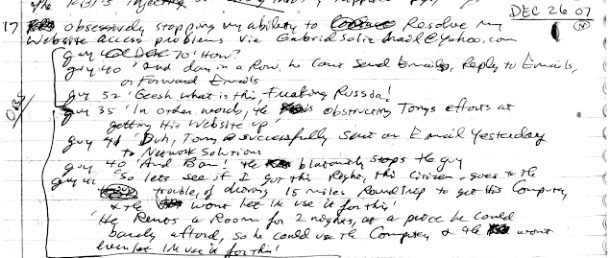 DEC 26 07
17 obsessively stopping my ability to Resolve my
Website access problems via Gabrielsolizmail@yahoo.com
guy 70 'How?'
guy 40 '2nd day in a Row, he cant Send Emails, Reply to Emails,
or Forward Emails
guy 52 'Geesh what is this, Fucking Russia!
guy 35 'In other words, the is obstructing Tonys efforts at
getting His Website up'
guy 41 'Duh, Tony successfully Sent an Email Yesterday
to Network Solutions
guy 40 'And Bam! the blatantly stops the guy
guy 41 'So lets see if I got this Right, this citizen, goes to the
trouble, of driving 15 miles Roundtrip to get His Computer,
& the wont Let him use it for this!'
'He Rents a Room for 2 nights, at a price he could
barely afford, so he could use the Computer & the wont
even let him use it for this!